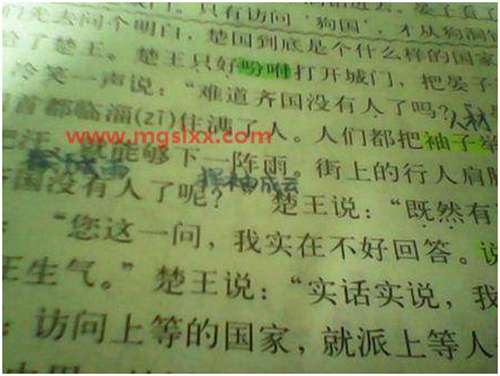 只有访问‘狗国’，才从狗洞
先去问个明白，楚国到底是个什么样的国家
告了楚王。楚王只好吩咐打开城门，把晏子
冷笑一声说：“难道齐国没有人了吗？
首都临淄(zī)住满了人。人们都把袖子举
www.mgslxx.com
把汗，就能够下一阵雨。街上的行人肩
成云
国没有人了呢？” 楚王说：“既然有
：“您这一问，我实在不好回答。说
王生气。”楚王说：“实话实说，我
：访问上等的国家，就派上等人